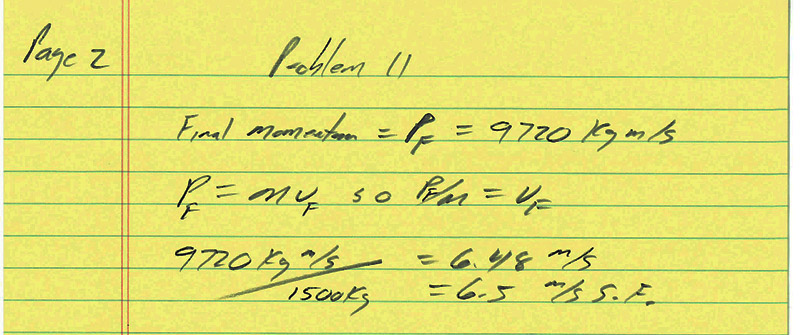 Page 2
Problem 11
Final momentum = P_F = 9720 Kg m/s
P_F = m v_F so P_F/m = v_F
9720 Kg m/s = 6.48 m/s
1500 Kg = 6.5 m/s S.F.